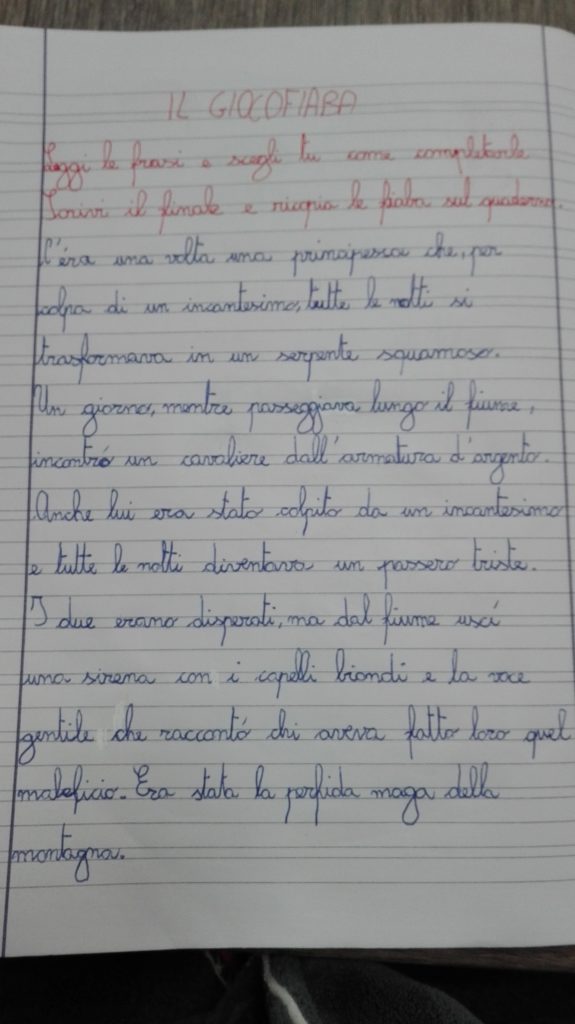 IL GIOCOFIABA
Leggi le frasi e scegli tu come completarle
Scrivi il finale e ricopia le fiaba sul quaderno.
C'éra una volta una principessa che, per
colpa di un incantesimo, tutte le notti si
trasformava in un serpente squamoso.
Un giorno, mentre passeggiava lungo il fiume,
incontró un cavaliere dall'armatura d'argento.
Anche lui era stato colpito da un incantesimo
e tutte le notti diventava un passero triste.
I due erano disperati, ma dal fiume uscí
una sirena con i capelli biondi e la voce
gentile che raccontó chi aveva fatto loro quel
maleficio. Era stata la perfida maga della
montagna.